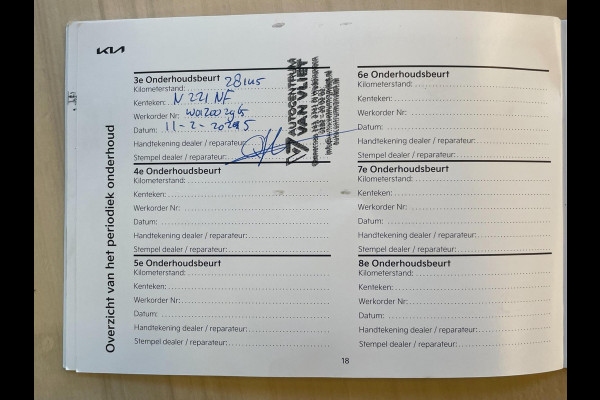 KIA
Overzicht van het periodiek onderhoud
3e Onderhoudsbeurt
Kilometerstand: 28145
Kenteken: N 221 NF
Werkorder Nr:
Datum: 11-2-2025
Handtekening dealer / reparateur:
Stempel dealer / reparateur:
AUTOCENTRUM
VAN VLIET
4e Onderhoudsbeurt
Kilometerstand:
Kenteken:
Werkorder Nr:
Datum:
Handtekening dealer / reparateur:
Stempel dealer / reparateur:
5e Onderhoudsbeurt
Kilometerstand:
Kenteken:
Werkorder Nr:
Datum:
Handtekening dealer / reparateur:
Stempel dealer / reparateur:
6e Onderhoudsbeurt
Kilometerstand:
Kenteken:
Werkorder Nr:
Datum:
Handtekening dealer / reparateur:
Stempel dealer / reparateur:
7e Onderhoudsbeurt
Kilometerstand:
Kenteken:
Werkorder Nr:
Datum:
Handtekening dealer / reparateur:
Stempel dealer / reparateur:
8e Onderhoudsbeurt
Kilometerstand:
Kenteken:
Werkorder Nr:
Datum:
Handtekening dealer / reparateur:
Stempel dealer / reparateur:
18